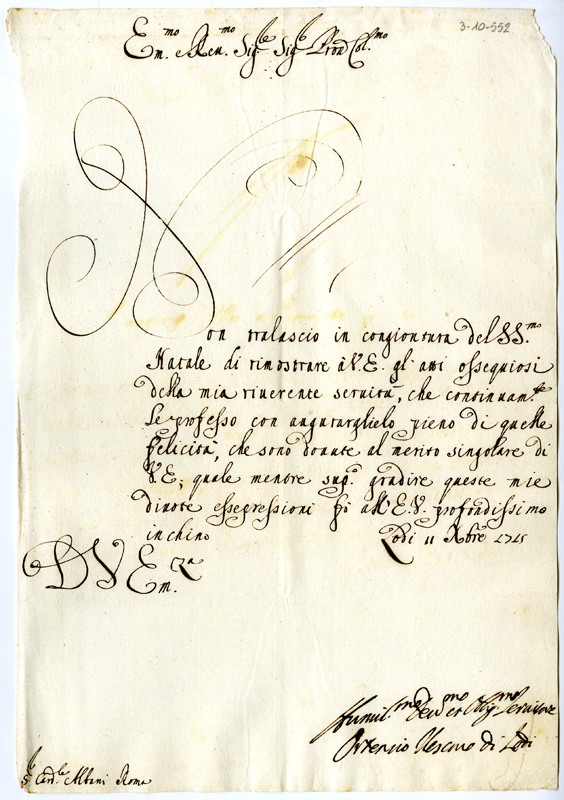 3-10-552
Em.mo e Reu.mo Sig.re Sig.re Pron Col.mo
Non tralascio in congiontura del SS.mo
Natale di rimostrare à V.E. gl'atti ossequiosi
della mia riuerente seruitù, che continuam.te
Le professo con augurarglielo pieno di quelle
felicità, che sono douute al merito singolare di
V.E., quale mentre sup.o gradire queste mie
diuote espressioni fò all'E.V. profondissimo
inchino Lodi 11 Xbre 1715
D V Em.za
Humil.mo Deu.mo et Oblig.mo Seruitore
Ortensio Vescouo di Lodi
S.r Card.le Albani Roma